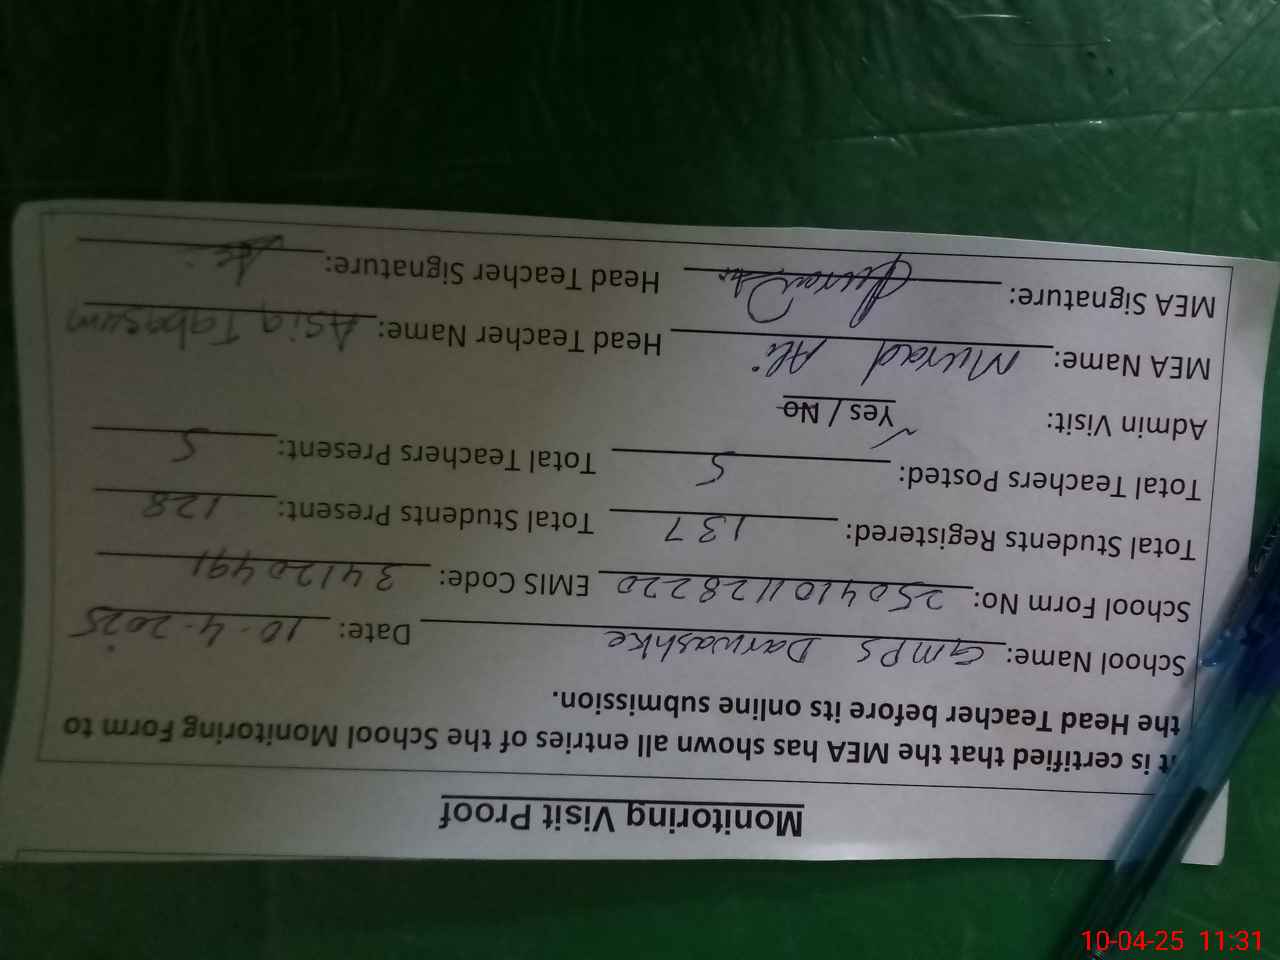 Monitoring Visit Proof
It is certified that the MEA has shown all entries of the School Monitoring Form to
the Head Teacher before its online submission.
School Name: GMPS Darwashke Date: 10-4-2025
School Form No: 2504101128220 EMIS Code: 34120491
Total Students Registered: 137 Total Students Present: 128
Total Teachers Posted: 5 Total Teachers Present: 5
Admin Visit: Yes / No
MEA Name: Murad Ali Head Teacher Name: Asia Tabasum
MEA Signature: Head Teacher Signature:
10-04-25 11:31